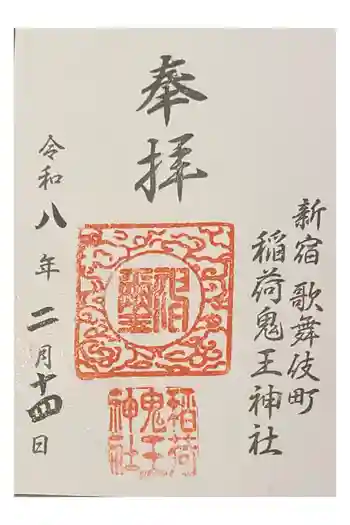 奉拝
新宿歌舞伎町
稲荷鬼王神社
稲荷
鬼王
神社
令和八年二月十四日